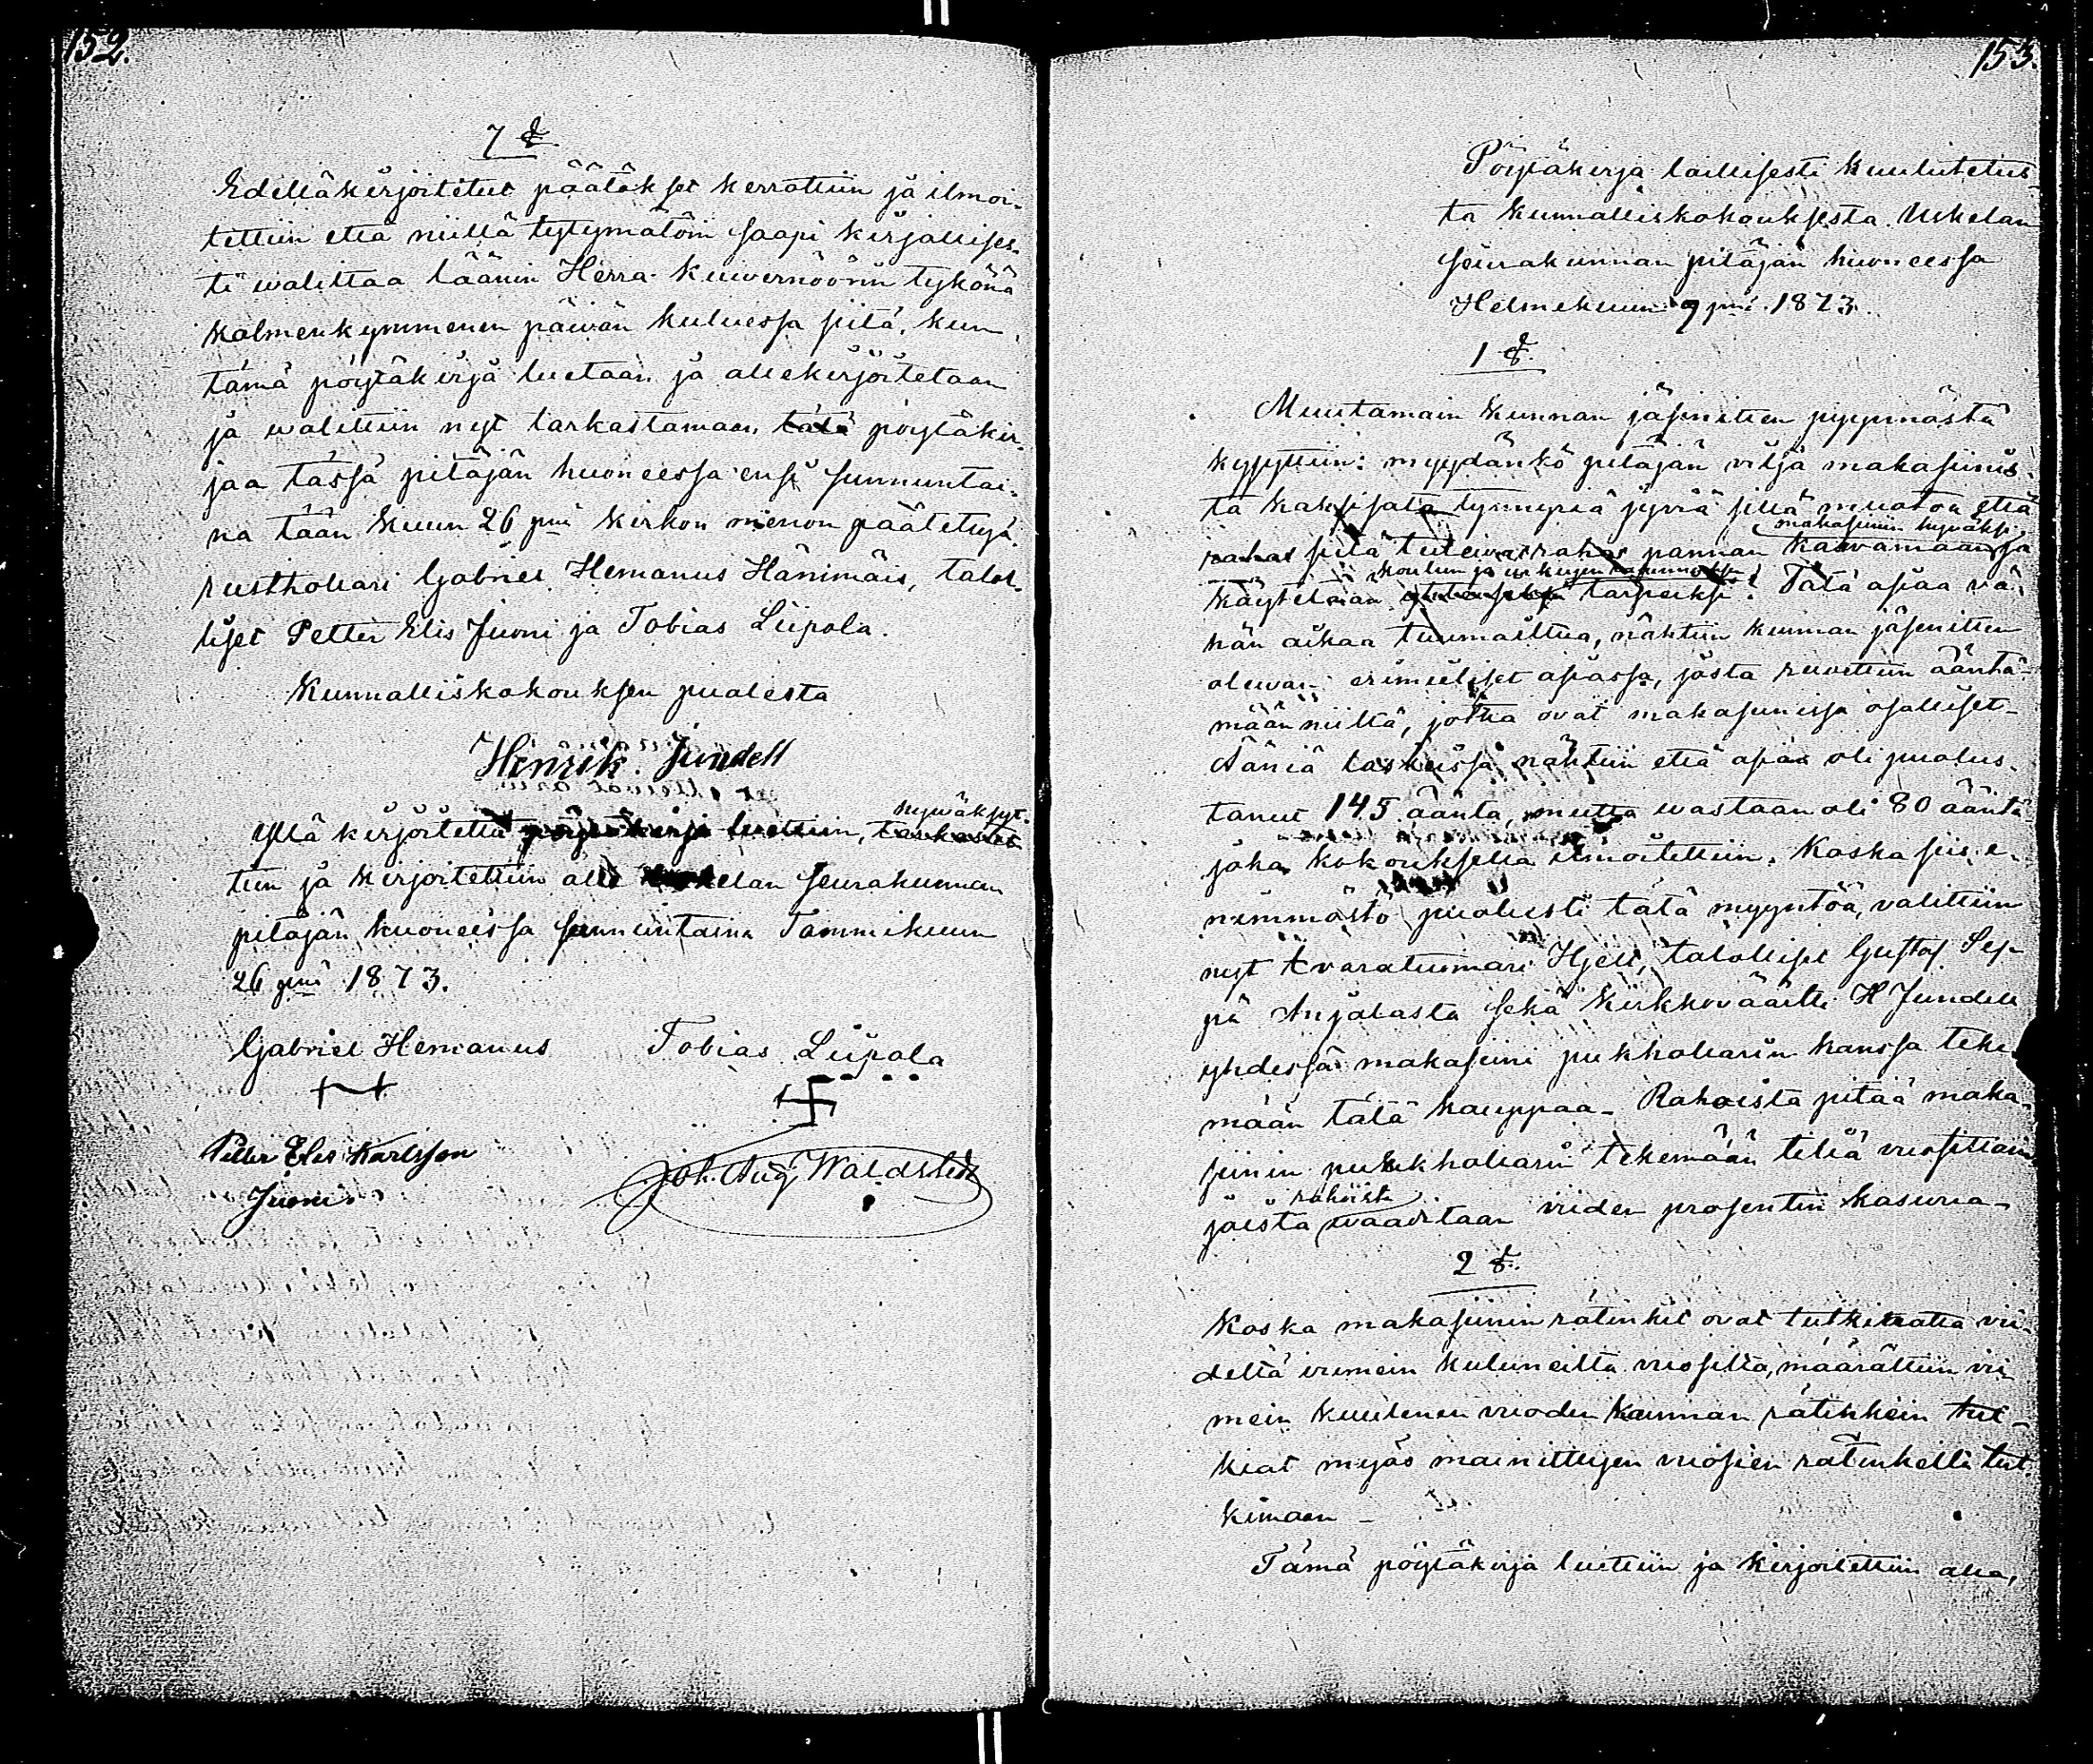 152.
7 §.
Edellä kirjoitetut päätökset kerrottiin ja ilmoi-
tettiin että niillä tytymätöin saapi kirjallises-
ti walittaa läänin Herra Kuwernöörin tykönä
kolmenkymmenen päiwän kuluessa siitä, kun
tämä pöytäkirja luetaan ja allekirjoitetaan
ja walittiin nyt tarkastamaan tätä pöytäkir-
jaa tässä pitäjän huoneessa ensi sunnuntai-
na tään kuun 26 pnä kirkon menon päätettyä
rusthollari Gabriel Hemanus Hänimäis, talol-
liset Petter Elis Juoni ja Tobias Liipola.
Kunnalliskokouksen puolesta
Henrik Jundell
hywäksyt-
Yllä kirjoitettu pöytäkirja luettiin, tarkastet-
tiin ja kirjoitettiin alle Uskelan seurakunnan
pitäjän huoneessa sunnuntaina Tammikuun
26 pnä 1873.
Gabriel Hemanus Tobias Liipola
Petter Elis Karlsson
Juoni Joh. Aug. Waldstedt
153.
Pöytäkirja laillisesti kuulutetus-
ta kunnalliskokouksesta Uskelan
seurakunnan pitäjän huoneessa
Helmekuun 9 pnä 1873.
1 §.
Muutamain kunnan jäsenitten pyynnöstä
kysyttiin: myydänkö pitäjän vilja makasiinis-
ta kaksisata tynnyriä jyviä sillä muoton että
makasiinin hyväksi
rahat siitä tulewat rahat pannan kasvamaan ja
koulun ja urkujen rakennoksi
käytetään tarpeiksi? Tätä asiaa vä-
hän aikaa tuumailtua, nähtiin kunnan jäsenitten
olewan erimieliset asiassa, josta ruvettiin ääntä-
mään niiltä, jotka ovat makasiinissa osalliset-
Ääniä laskeissa nähtiin että asiaa oli puolus-
tanut 145 ääntä, mutta wastaan oli 80 ääntä
joka kokoukselle ilmoitettiin. Koska siis e-
nimmästö puolusti tätä myyntöä, valittiin
nyt Varatuomari Hjelt, talollise Gustaf Sep-
pä Anjalasta sekä kirkkoväärtti H Jundell
yhdessä makasiini pukhollarin kanssa teke-
mään tätä kauppaa- Rahoista pitää maka-
siinin pukhollarin tekemään tiliä vuosittain
rahoista
joista waaditaan viiden prosentin kasuvia-
2 §.
Koska makasiinin rätinkit ovat tutkimatta vii-
deltä viimein kuluneilta vuosilta, määrättiin vii-
mein kuulunen vuoden kunnan rätinkein tut-
kiat myös mainittujen vuosien rätinkellä tut-
kimaan -
Tämä pöytäkirja luettiin ja kirjoitettiin alla,